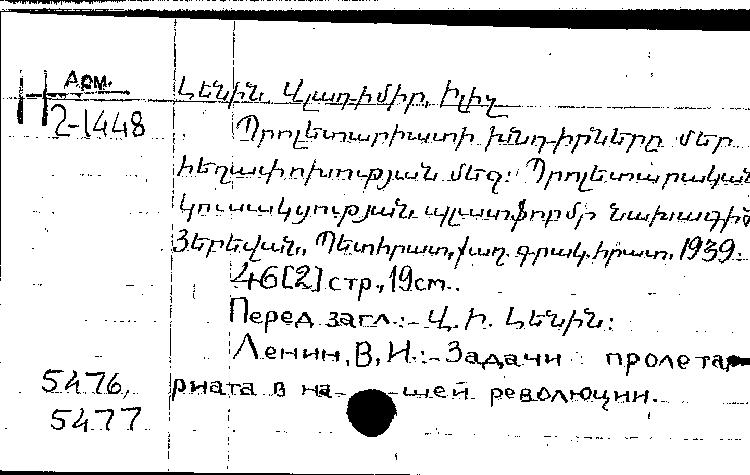 Арм.
2-1448
Լենին, Վլադիմիր, Իլիչ
Պրոլետարիատի խնդիրները մեր
հեղափոխության մեջ: Պրոլետարական
կուսակցության պլատֆորմի նախագիծ
Յերեվան, Պետհրատ, քաղ. գրակ. հրատ. 1939.
46[2] стр., 19см..
Перед загл.:- Վ. Ի. Լենին:
Ленин, В, И.:- Задачи пролета-
риата в на- шей революции.
5476,
5477